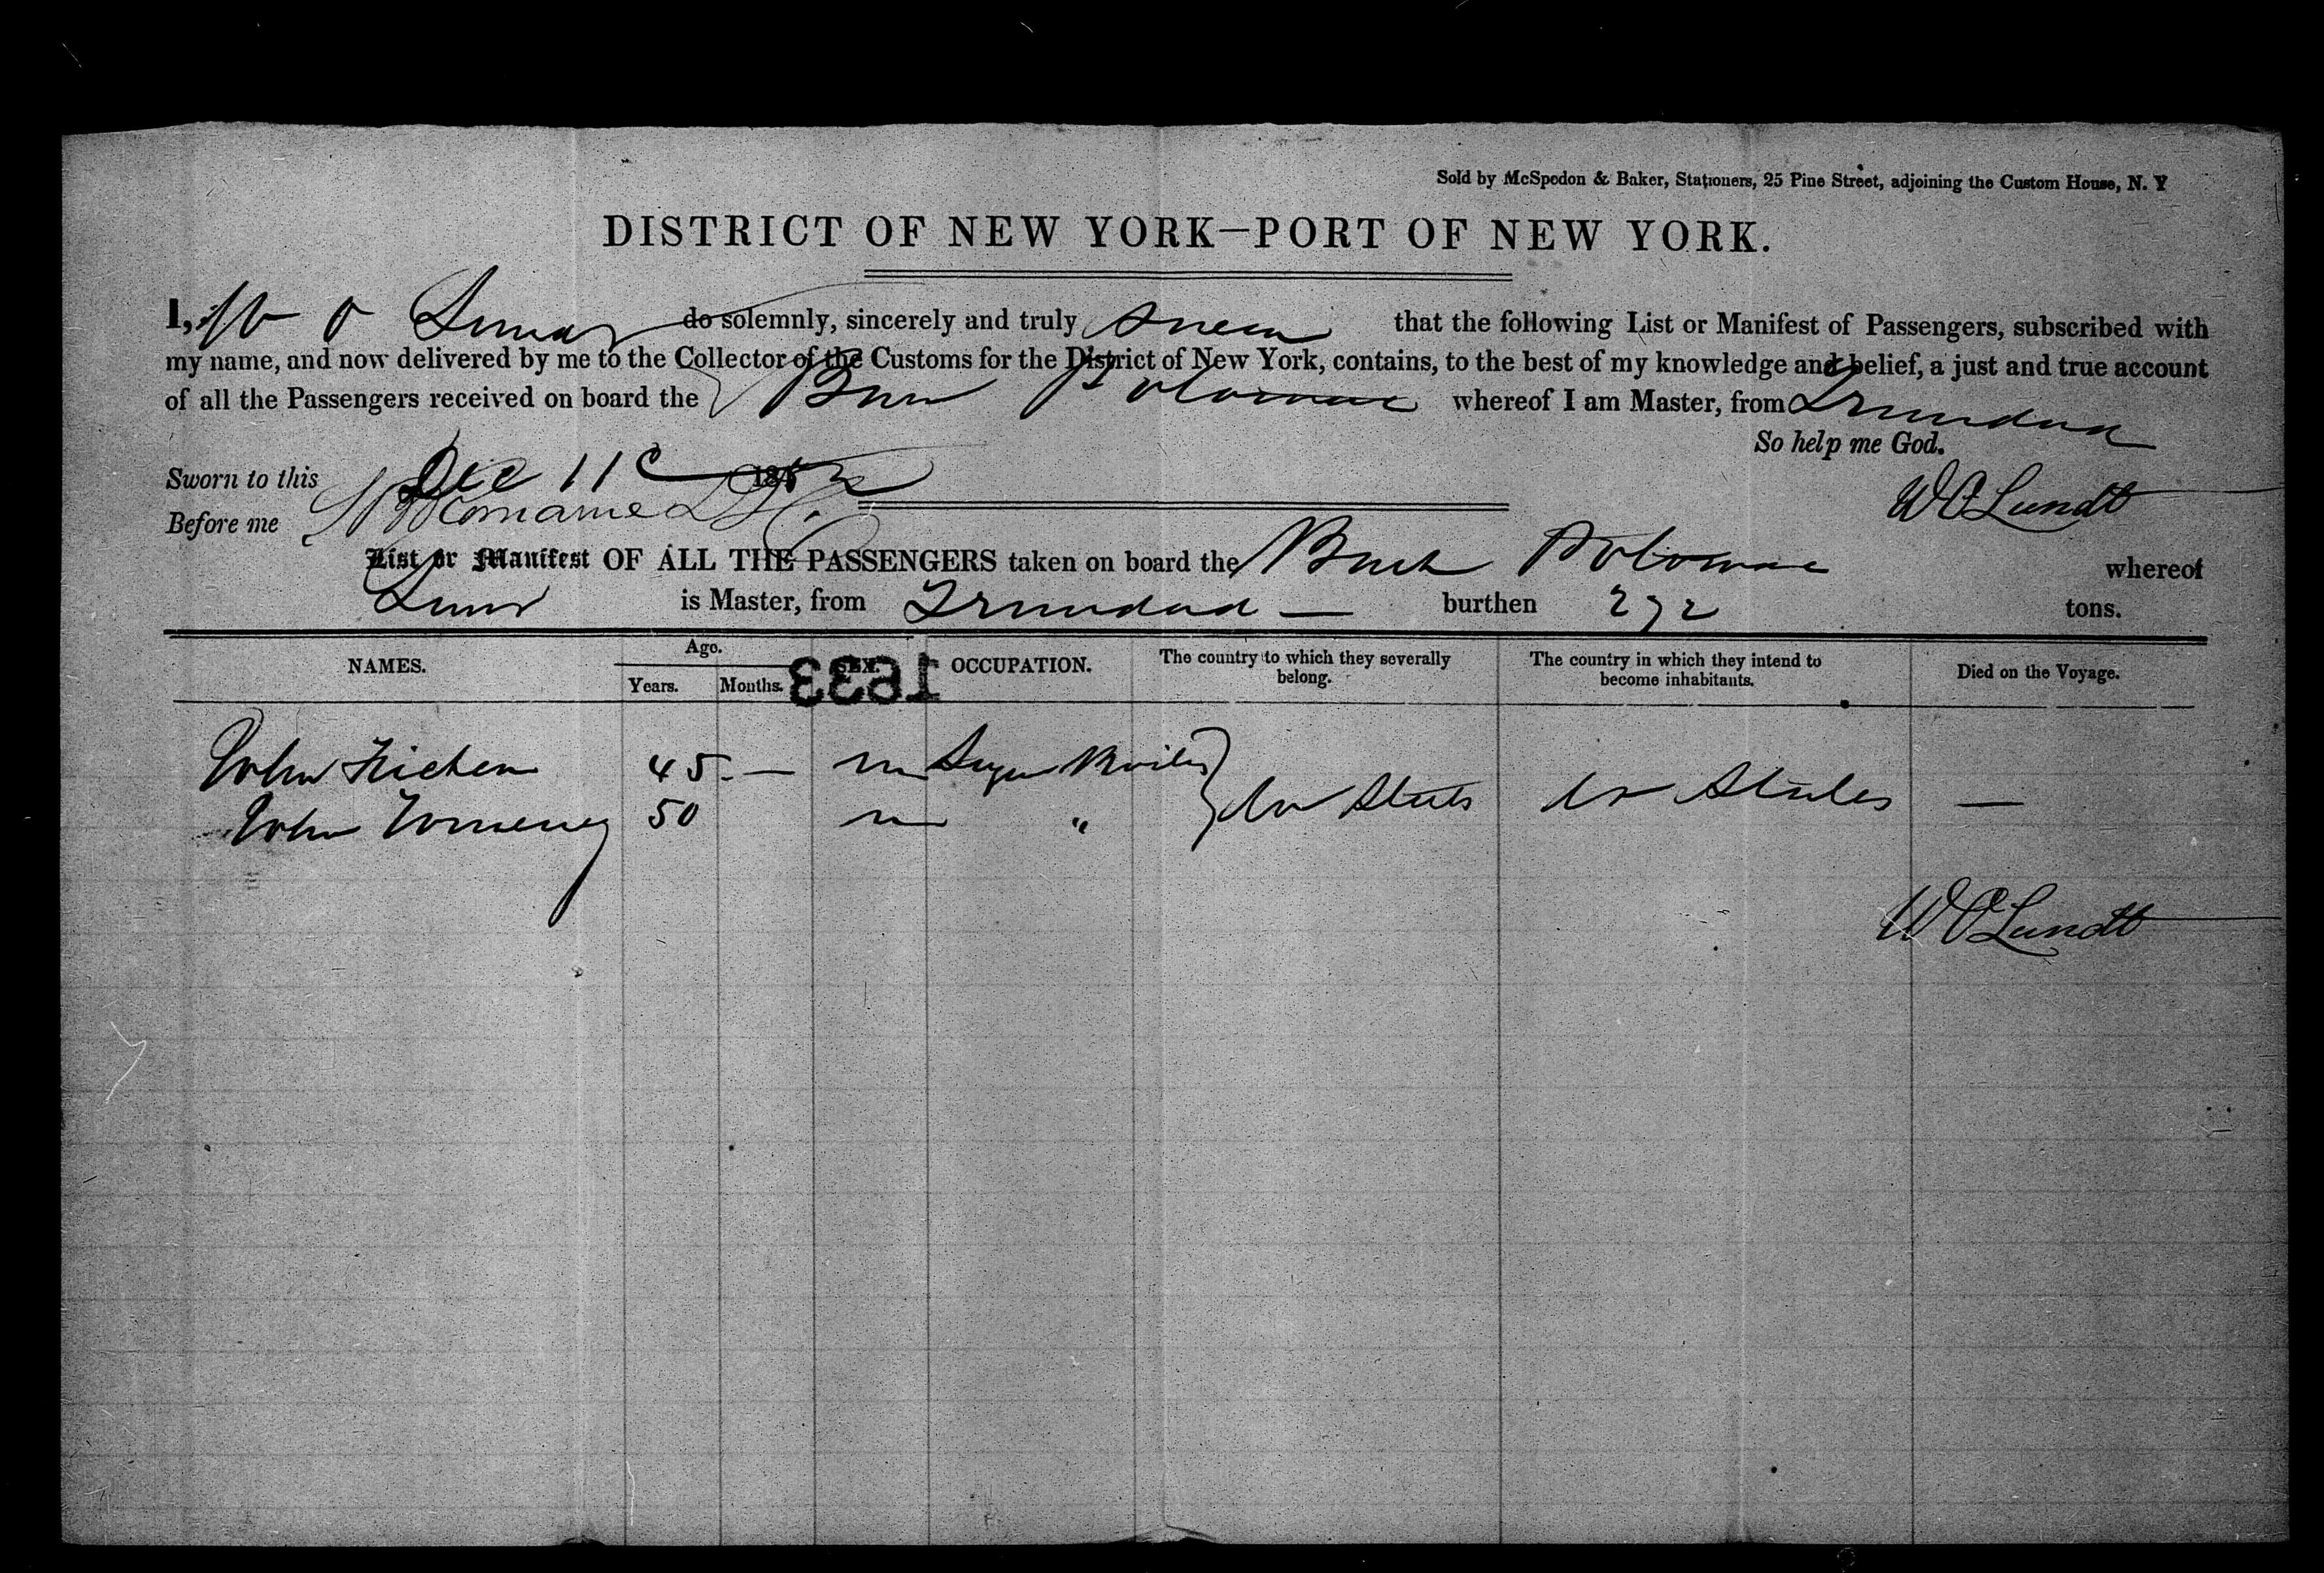 Sold by McSpedon & Baker, Stationers, 25 Pine Street, adjoining the Custom House, N. Y
DISTRICT OF NEW YORK—PORT OF NEW YORK.
I, W O do solemnly, sincerely and truly swear that the following List or Manifest of Passengers, subscribed with
my name, and now delivered by me to the Collector of the Customs for the District of New York, contains, to the best of my knowledge and belief, a just and true account
of all the Passengers received on board the Potomac whereof I am Master, from Trinidad
So help me God.
Sworn to this Dec 11 1852
Before me
W O Lundt
List or Manifest OF ALL THE PASSENGERS taken on board the Potomac whereof
is Master, from Trinidad — burthen 272 tons.
NAMES. Age. Years. Months. SEX. OCCUPATION. The country to which they severally belong. The country in which they intend to become inhabitants. Died on the Voyage.
1633
John 45 — m Sugar Boiler
U States U States —
John 50 m "
W O Lundt